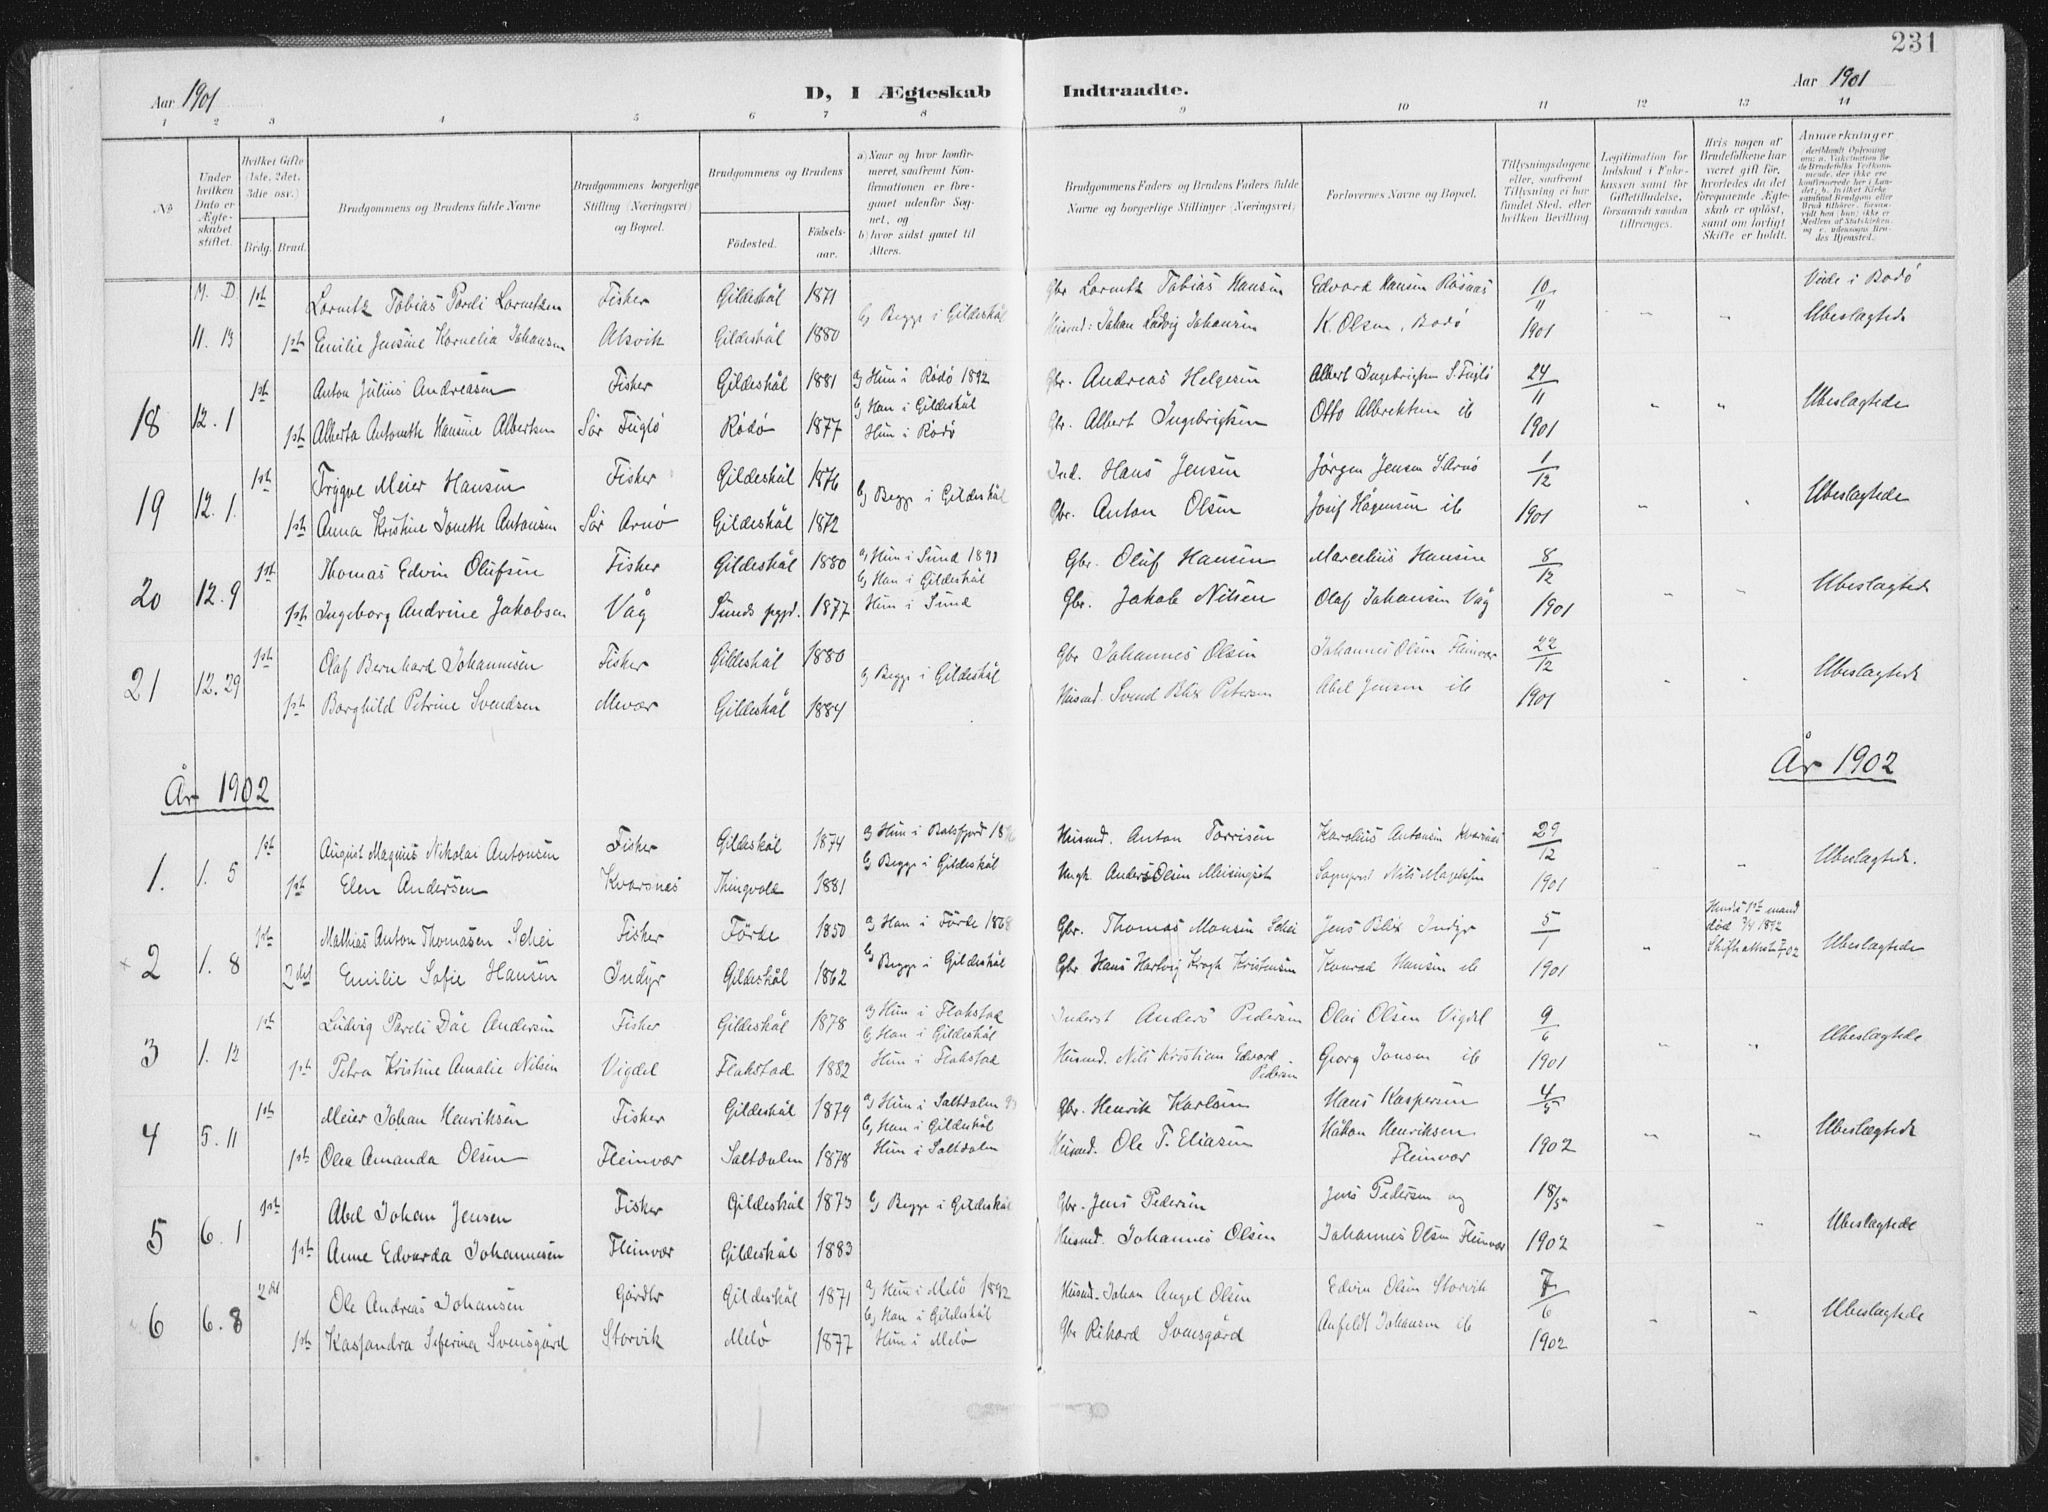 231
Aar 1901
D, I Ægteskab Indtraadte.
Aar 1901
1 2 3 4 5 6 7 8 9 10 11 12 13 14
No
Under hvilken Dato er Ægteskabet stiftet.
Hvilket Gifte (1ste, 2det, 3die osv.)
Brdg. Brud.
Brudgommens og Brudens fulde Navne
Brudgommens borgerlige Stilling (Næringsvei) og Bopæl.
Brudgommens og Brudens
Födested.
Födselsaar.
a) Naar og hvor konfirmeret, saafremt Konfirmationen er foregaaet udenfor Sognet, og
b) hvor sidst gaaet til Alters.
Brudgommens Faders og Brudens Faders fulde Navne og borgerlige Stillinger (Næringsvei)
Forlovernes Navne og Bopæl.
Tillysningsdagene eller, saafremt Tillysning ei har fundet Sted, efter hvilken Bevilling
Legitimation for Indskud i Enkekassen samt for Giftetilladelse, forsaavidt saadan tiltrænges.
Hvis nogen af Brudefolkene har været gift før, hvorledes da det foregaaende Ægteskab er oplöst, samt om lovligt Skifte er holdt.
Anmærkninger
M. D. 1ste Lorentz Tobias Pardi Lorentzen Fisker Gildeskål 1871 b) Begge i Gildeskål Gbr Lorentz Tobias Hansen Edvard Hansen Røsnæs 10/11 Viede i Bodø
11. 13 1ste Emilie Jensine Kornelia Johansen Alsvik Gildeskål 1880 Husmd: Johan Ludvig Johansen K. Olsen, Bodø 1901 " " Ubeslægtede
1ste Anton Julius Andreasen Fisker Gildeskål 1881 a) Hun i Rödö 1892 Gbr. Andreas Helgesen Albert Ingebrigtsen S. Fuglö 24/11
18 12. 1 b) Han i Gildeskål " " Ubeslægtede
1ste Alberta Antonette Hansine Albertsen Sör Fuglö Rödö 1877 Hun i Rödö Gbr. Albert Ingebrigtsen Otto Albrektsen ib 1901
1ste Trygve Meier Hansen Fisker Gildeskål 1876 Ind. Hans Jensen Jörgen Jensen S. Arnö 1/12
19 12. 1. b) Begge i Gildeskål " " Ubeslægtede
1ste Anna Kristine Jonette Antonsen Sör Arnö Gildeskål 1872 Gbr. Anton Olsen Josef Hågensen ib 1901
1ste Thomas Edvin Olufsen Fisker Gildeskål 1880 a) Hun i Sund 1891 Gbr. Oluf Hansen Marcelius Hansen 8/12
20 12. 9 b) Han i Gildeskål " " Ubeslægtede
1ste Ingeborg Andrine Jakobsen Våg Sunds pgd. 1877 Hun i Sund Gbr. Jakob Nilsen Olaf Johansen Våg 1901
1ste Olaf Bernhard Johannesen Fisker Gildeskål 1880 Gbr Johannes Olsen Johannes Olsen Fleinvær 22/12
21 12. 29 b) Begge i Gildeskål " " Ubeslægtede
1ste Borghild Petrine Svendsen Mevær Gildeskål 1884 Husmd. Svend Blix Petersen Abel Jensen ib 1901
År 1902
År 1902
1ste August Magnus Nikolai Antonsen Fisker Gildeskål 1874 a) Hun i Balsfjord Husmd. Anton Torrisen Karolius Antonsen Kvarsnæs 29/12
1. 1. 5 b) Begge i Gildeskål " " Ubeslægtede.
1ste Elen Andersen Kvarsnæs Thingvold 1881 Ungk. Anders Olsen Meisingset Sogneprest Nils Magelssen 1901
1ste Mathias Anton Thomasen Schei Fisker Förde 1850 a) Han i Förde 1868 Gbr. Thomas Monsen Schei Jens Blix Indyr 5/1 Hendes 1ste mand död 3/4 1892
× 2 1. 8 b) Begge i Gildeskål " Skifteattest Ubeslægtede
2det Emilie Sofie Hansen Indyr Gildeskål 1862 Gbr Hans Hartvig Krogh Kristensen Konrad Hansen ib 1901
1ste Ludvig Pareli Döe Andersen Fisker Gildeskål 1878 a) Hun i Flakstad Inderst Anders Pedersen Olai Olsen Vigdel 9/6
3 1. 12 b) Han i Gildeskål " " Ubeslægtede
1ste Petra Kristine Amalie Nilsen Vigdel Flakstad 1882 Hun i Flakstad Husmd. Nils Kristian Edvard Pedersen Georg Jonsen ib 1901
1ste Meier Johan Henriksen Fisker Gildeskål 1879 a) Hun i Saltdalen 93 Gbr. Henrik Karlsen Hans Kaspersen 4/5
4 5. 11 b) Han i Gildeskål " " Ubeslægtede
1ste Olea Amanda Olsen Fleinvær Saltdalen 1878 Hun i Saltdalen Husmd. Ole T. Eliasen Håkon Henriksen Fleinvær 1902
1ste Abel Johan Jensen Fisker Gildeskål 1873 b) Begge i Gildeskål Gbr. Jens Pedersen Jens Pedersen og 18/5
5 6. 1 " " Ubeslægtede
1ste Anne Edvarda Johannesen Fleinvær Gildeskål 1883 Husmd. Johannes Olsen Johannes Olsen Fleinvær 1902
2det Ole Andreas Johansen Gårdbr Gildeskål 1871 a) Hun i Melö 1892 Husmd. Johan Angel Olsen Edvin Olsen Storvik 7/6
6 6. 8 b) Han i Gildeskål " " Ubeslægtede
1ste Kassandra Seferina Svensgård Storvik Melö 1877 Hun i Melö Gbr Rikard Svensgård Anfeldt Johansen ib 1902